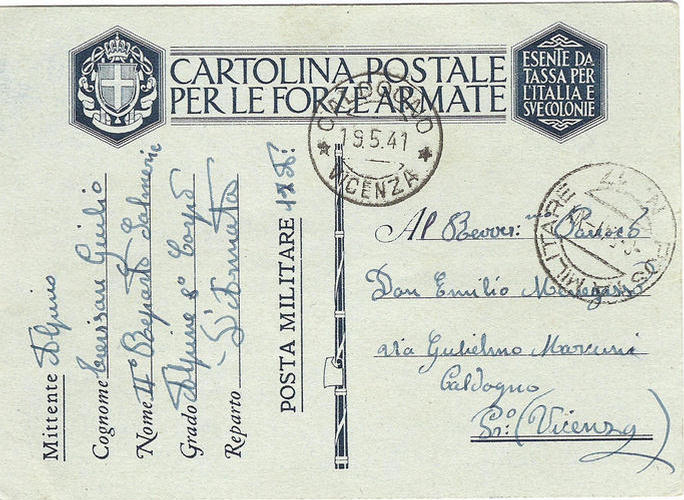 CARTOLINA POSTALE
PER LE FORZE ARMATE
ESENTE DA
TASSA PER
L'ITALIA E
SVE COLONIE
CALDOGNO
19.5.41
VICENZA
POSTA MILITARE
Al Rever: Paroco
Don Emilio
via Gulielmo Marconi
Caldogno
(Vicenza)
Mittente Alpino
Cognome Giulio
Nome 4° Reparto Salmerie
Grado Alpine 8° Corpo
Reparto D'Armata
POSTA MILITARE